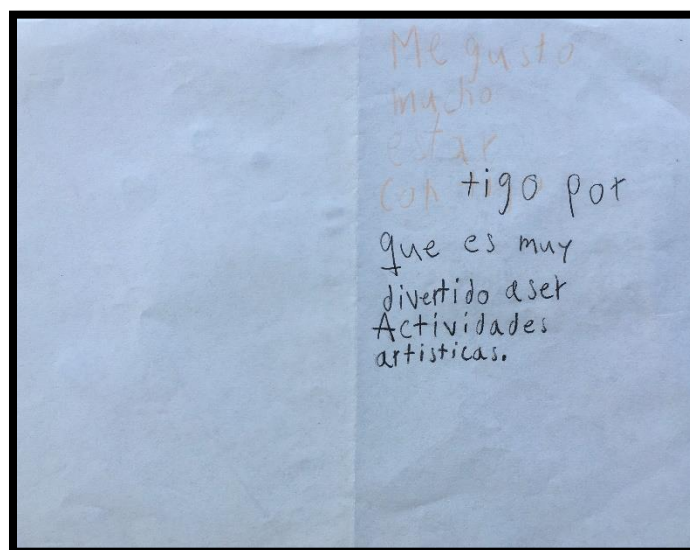 Me gusto
mucho
estar
con tigo por
que es muy
divertido aser
Actividades
artisticas.